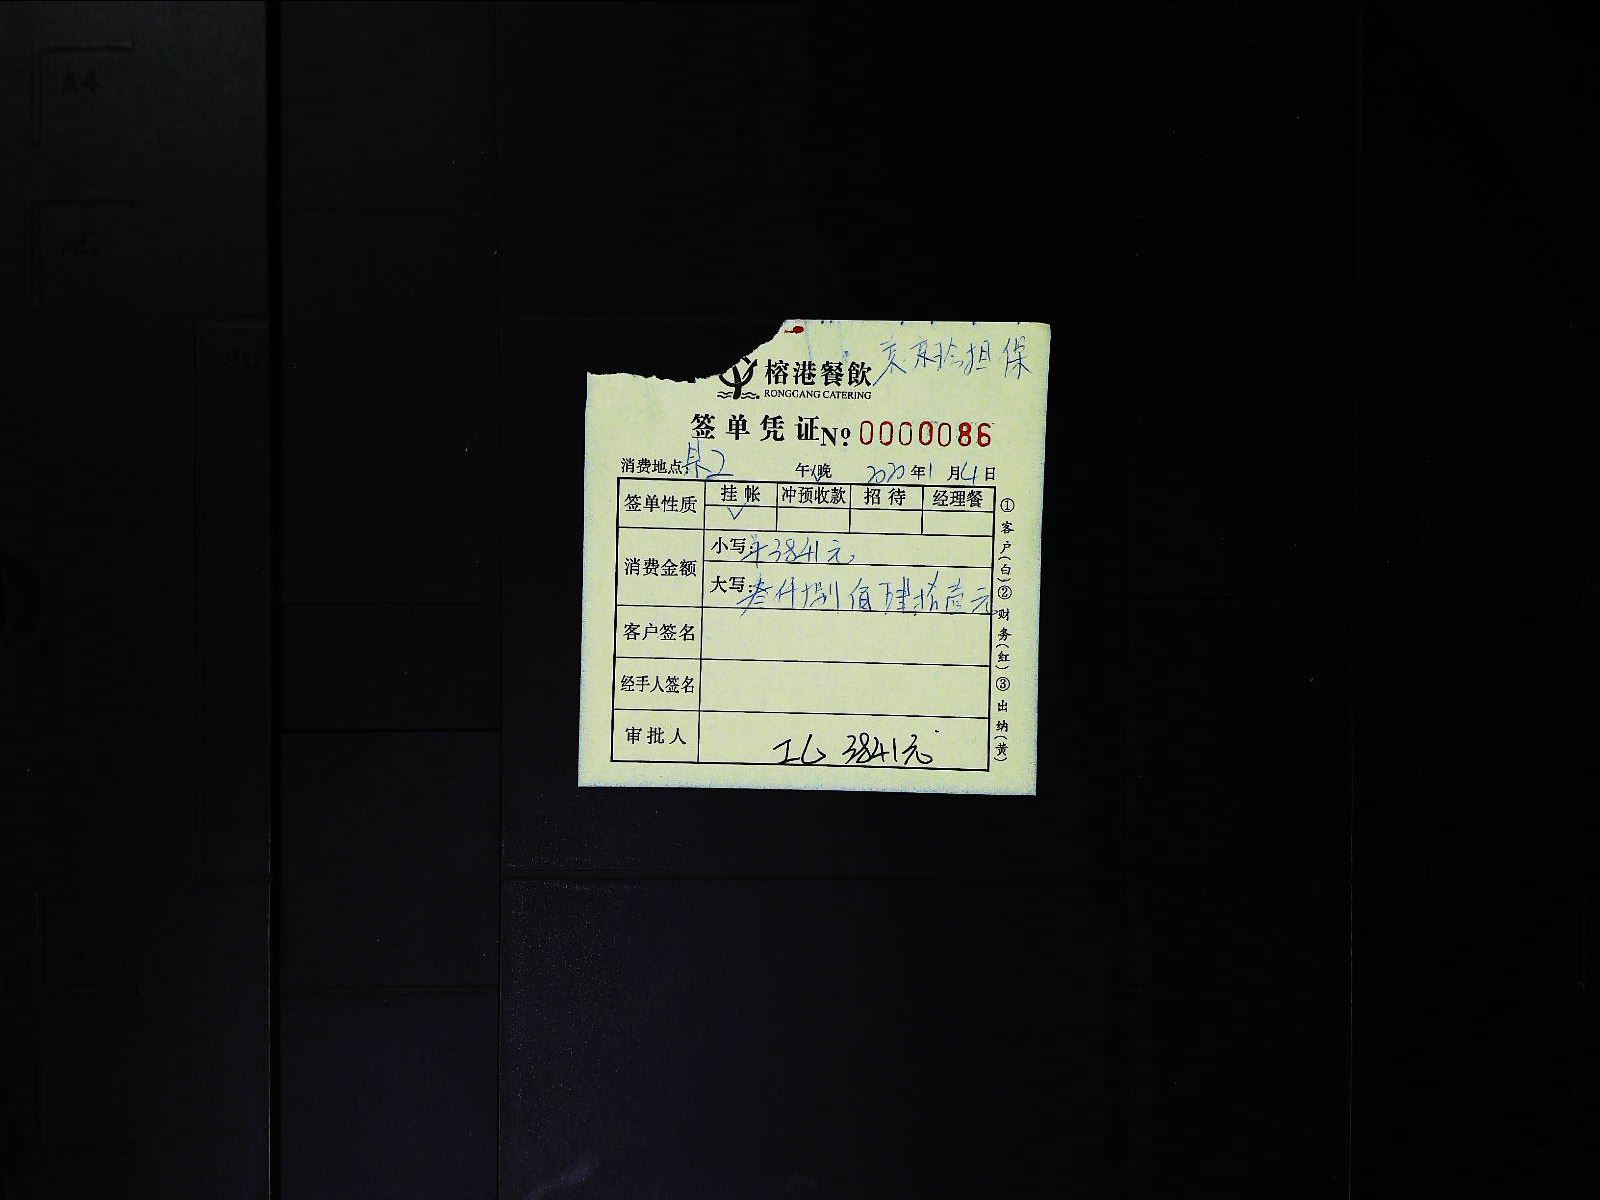 担保
榕港餐飲
RONGGANG CATERING
签单凭证 No 0000086
消费地点: 午/晚 2020年1月4日
签单性质 挂帐 冲预收款 招待 经理餐
✓
消费金额 小写: ¥3841元
大写: 叁仟捌佰肆拾壹元
客户签名
经手人签名
审批人 3841元
①客户(白)②财务(红)③出纳(黄)
A4
A5